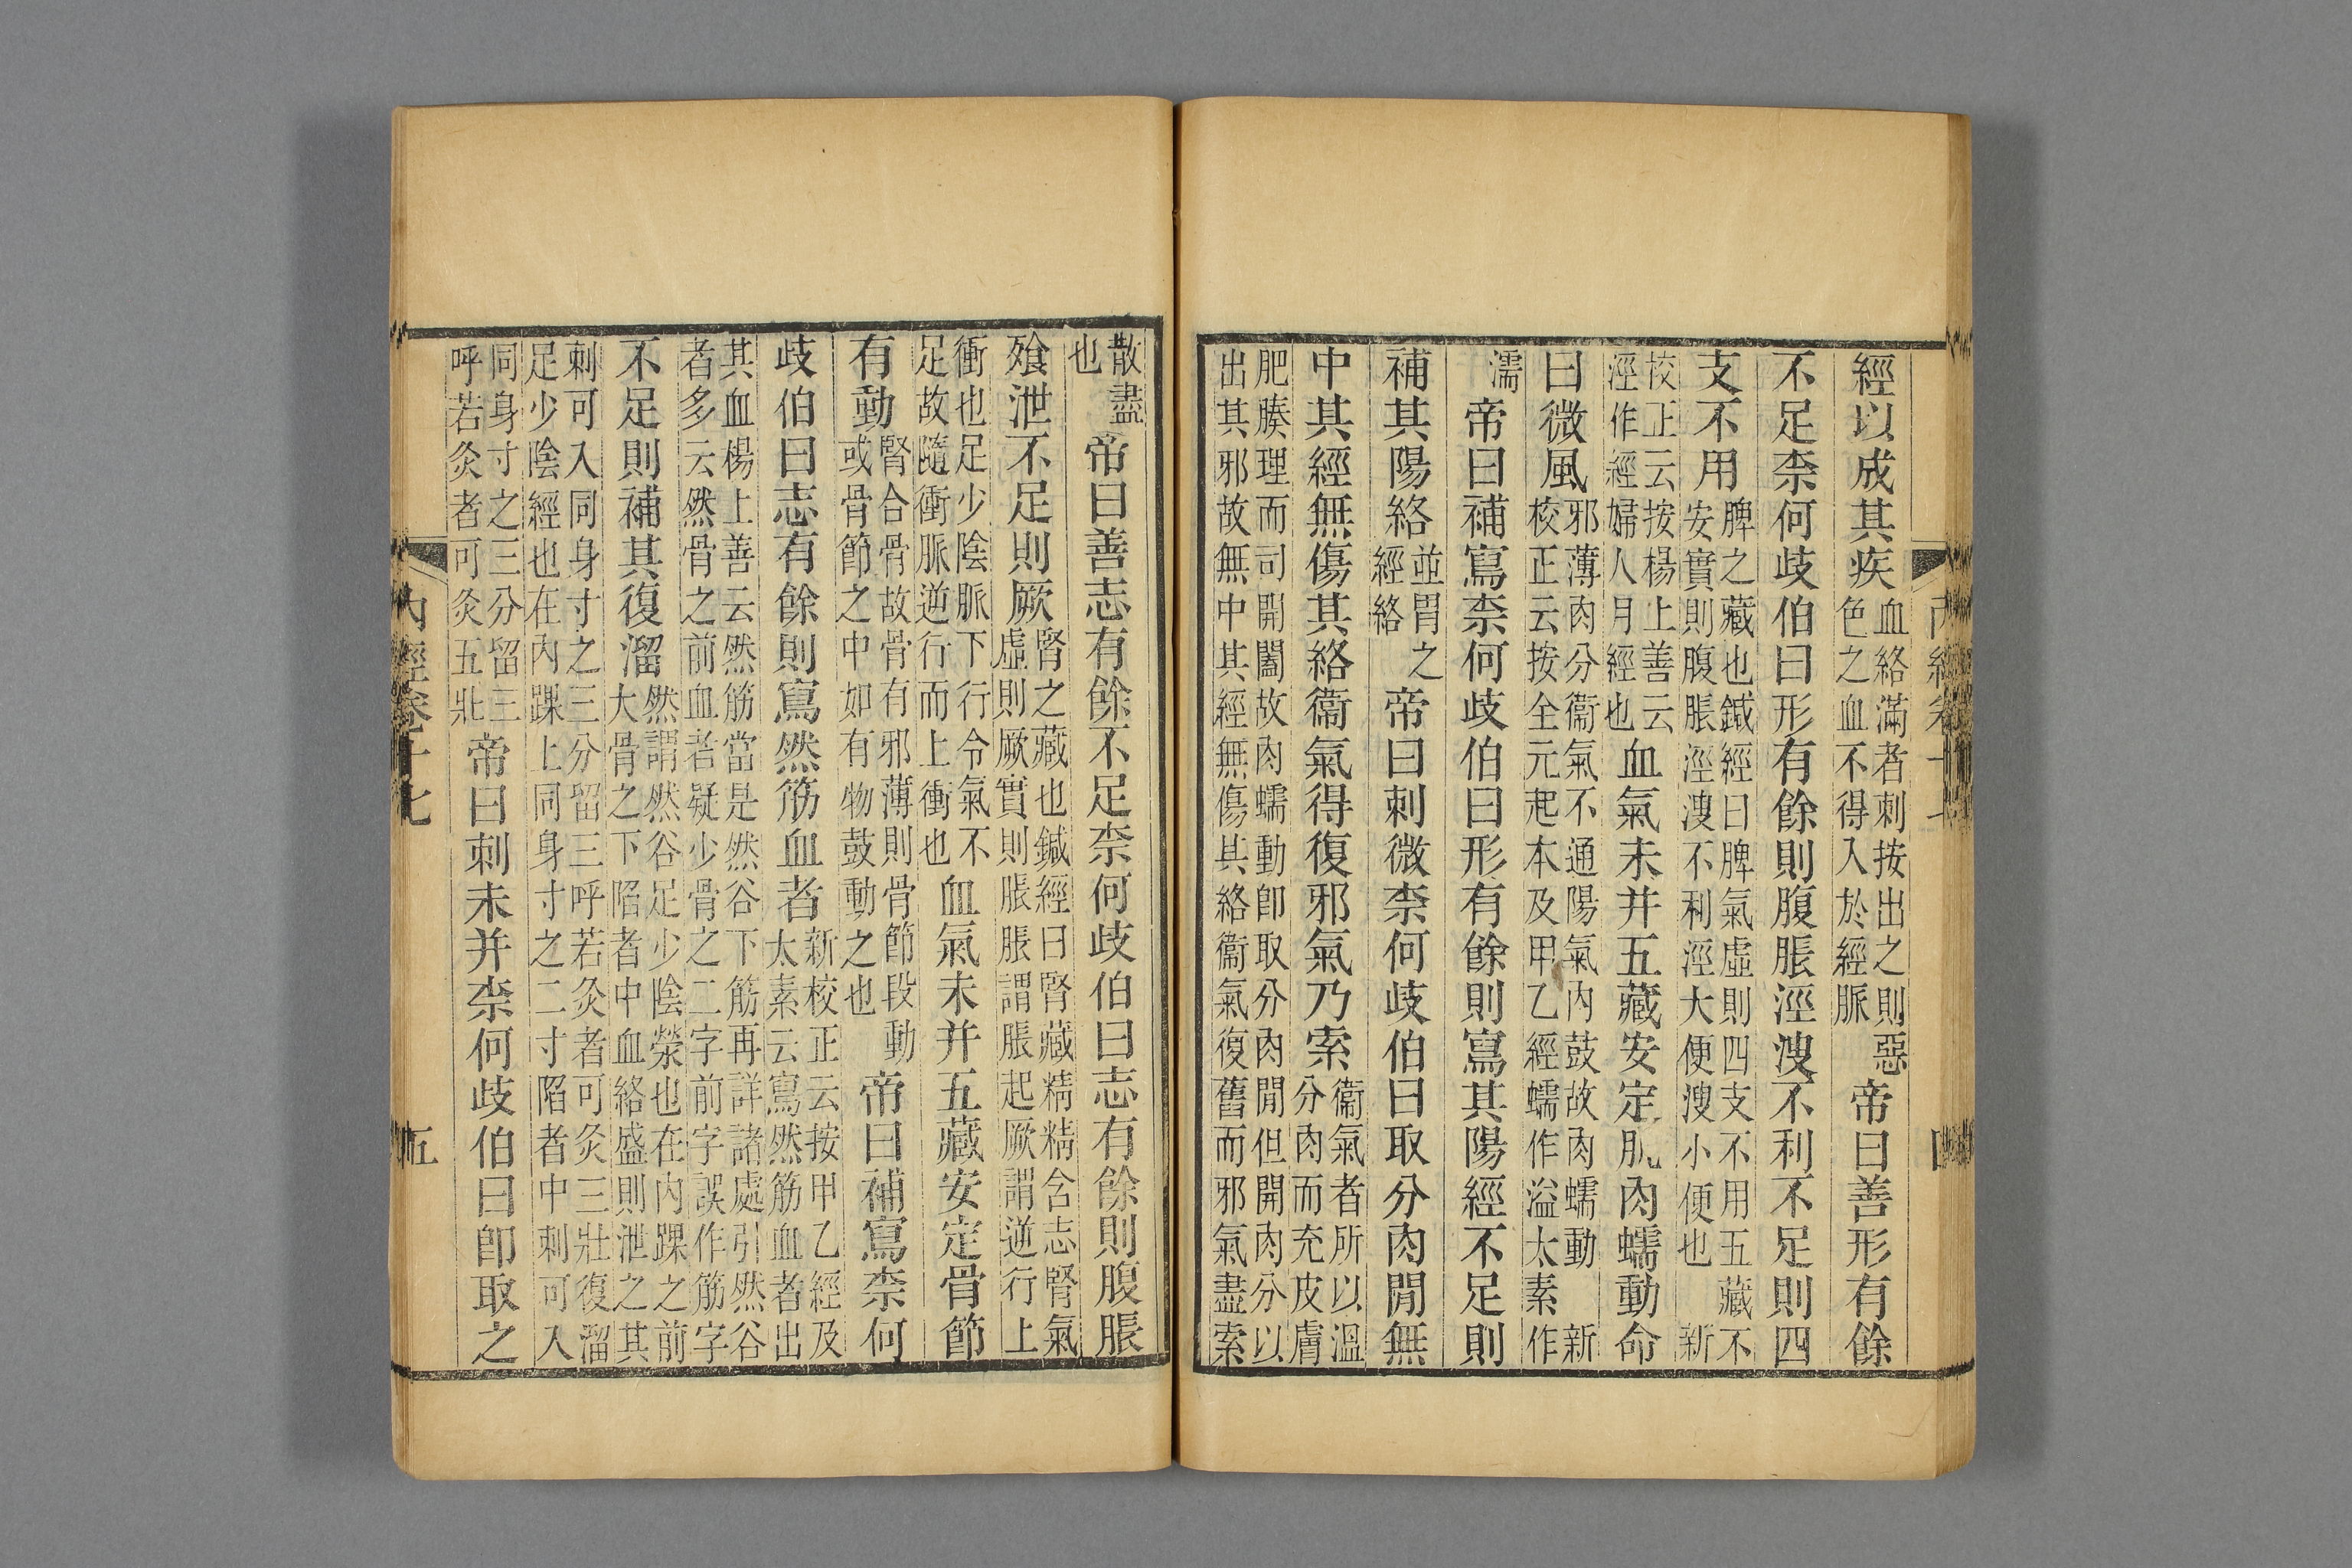 經以成其疾血絡滿者刺按出之則惡色之血不得入於經脈帝曰善形有餘
不足柰何歧伯曰形有餘則腹脹涇溲不利不足則四
支不用脾之藏也鍼經曰脾氣虛則四支不用五藏不安實則腹脹涇溲不利涇大便溲小便也新
校正云按楊上善云涇作經婦人月經也血氣未并五藏安定肌肉蠕動命
曰微風邪薄肉分衞氣不通陽氣內鼓故肉蠕動新校正云按全元起本及甲乙經蠕作溢太素作
濡帝曰補寫柰何歧伯曰形有餘則寫其陽經不足則
補其陽絡並胃之經絡帝曰刺微柰何歧伯曰取分肉閒無
中其經無傷其絡衞氣得復邪氣乃索衞氣者所以溫分肉而充皮膚
肥腠理而司開闔故肉蠕動卽取分肉閒但開肉分以出其邪故無中其經無傷其絡衞氣復舊而邪氣盡索
散盡也帝曰善志有餘不足柰何歧伯曰志有餘則腹脹
飱泄不足則厥腎之藏也鍼經曰腎藏精精含志腎氣虛則厥實則脹脹謂脹起厥謂逆行上
衝也足少陰脈下行令氣不足故隨衝脈逆行而上衝也血氣未并五藏安定骨節
有動腎合骨故骨有邪薄則骨節段動或骨節之中如有物鼓動之也帝曰補寫柰何
歧伯曰志有餘則寫然筋血者新校正云按甲乙經及太素云寫然筋血者出
其血楊上善云然筋當是然谷下筋再詳諸處引然谷者多云然骨之前血者疑少骨之二字前字誤作筋字
不足則補其復溜然謂然谷足少陰滎也在內踝之前大骨之下陷者中血絡盛則泄之其
刺可入同身寸之三分留三呼若灸者可灸三壯復溜足少陰經也在內踝上同身寸之二寸陷者中刺可入
同身寸之三分留三呼若灸者可灸五壯帝曰刺未并柰何歧伯曰卽取之
內經卷十七
五